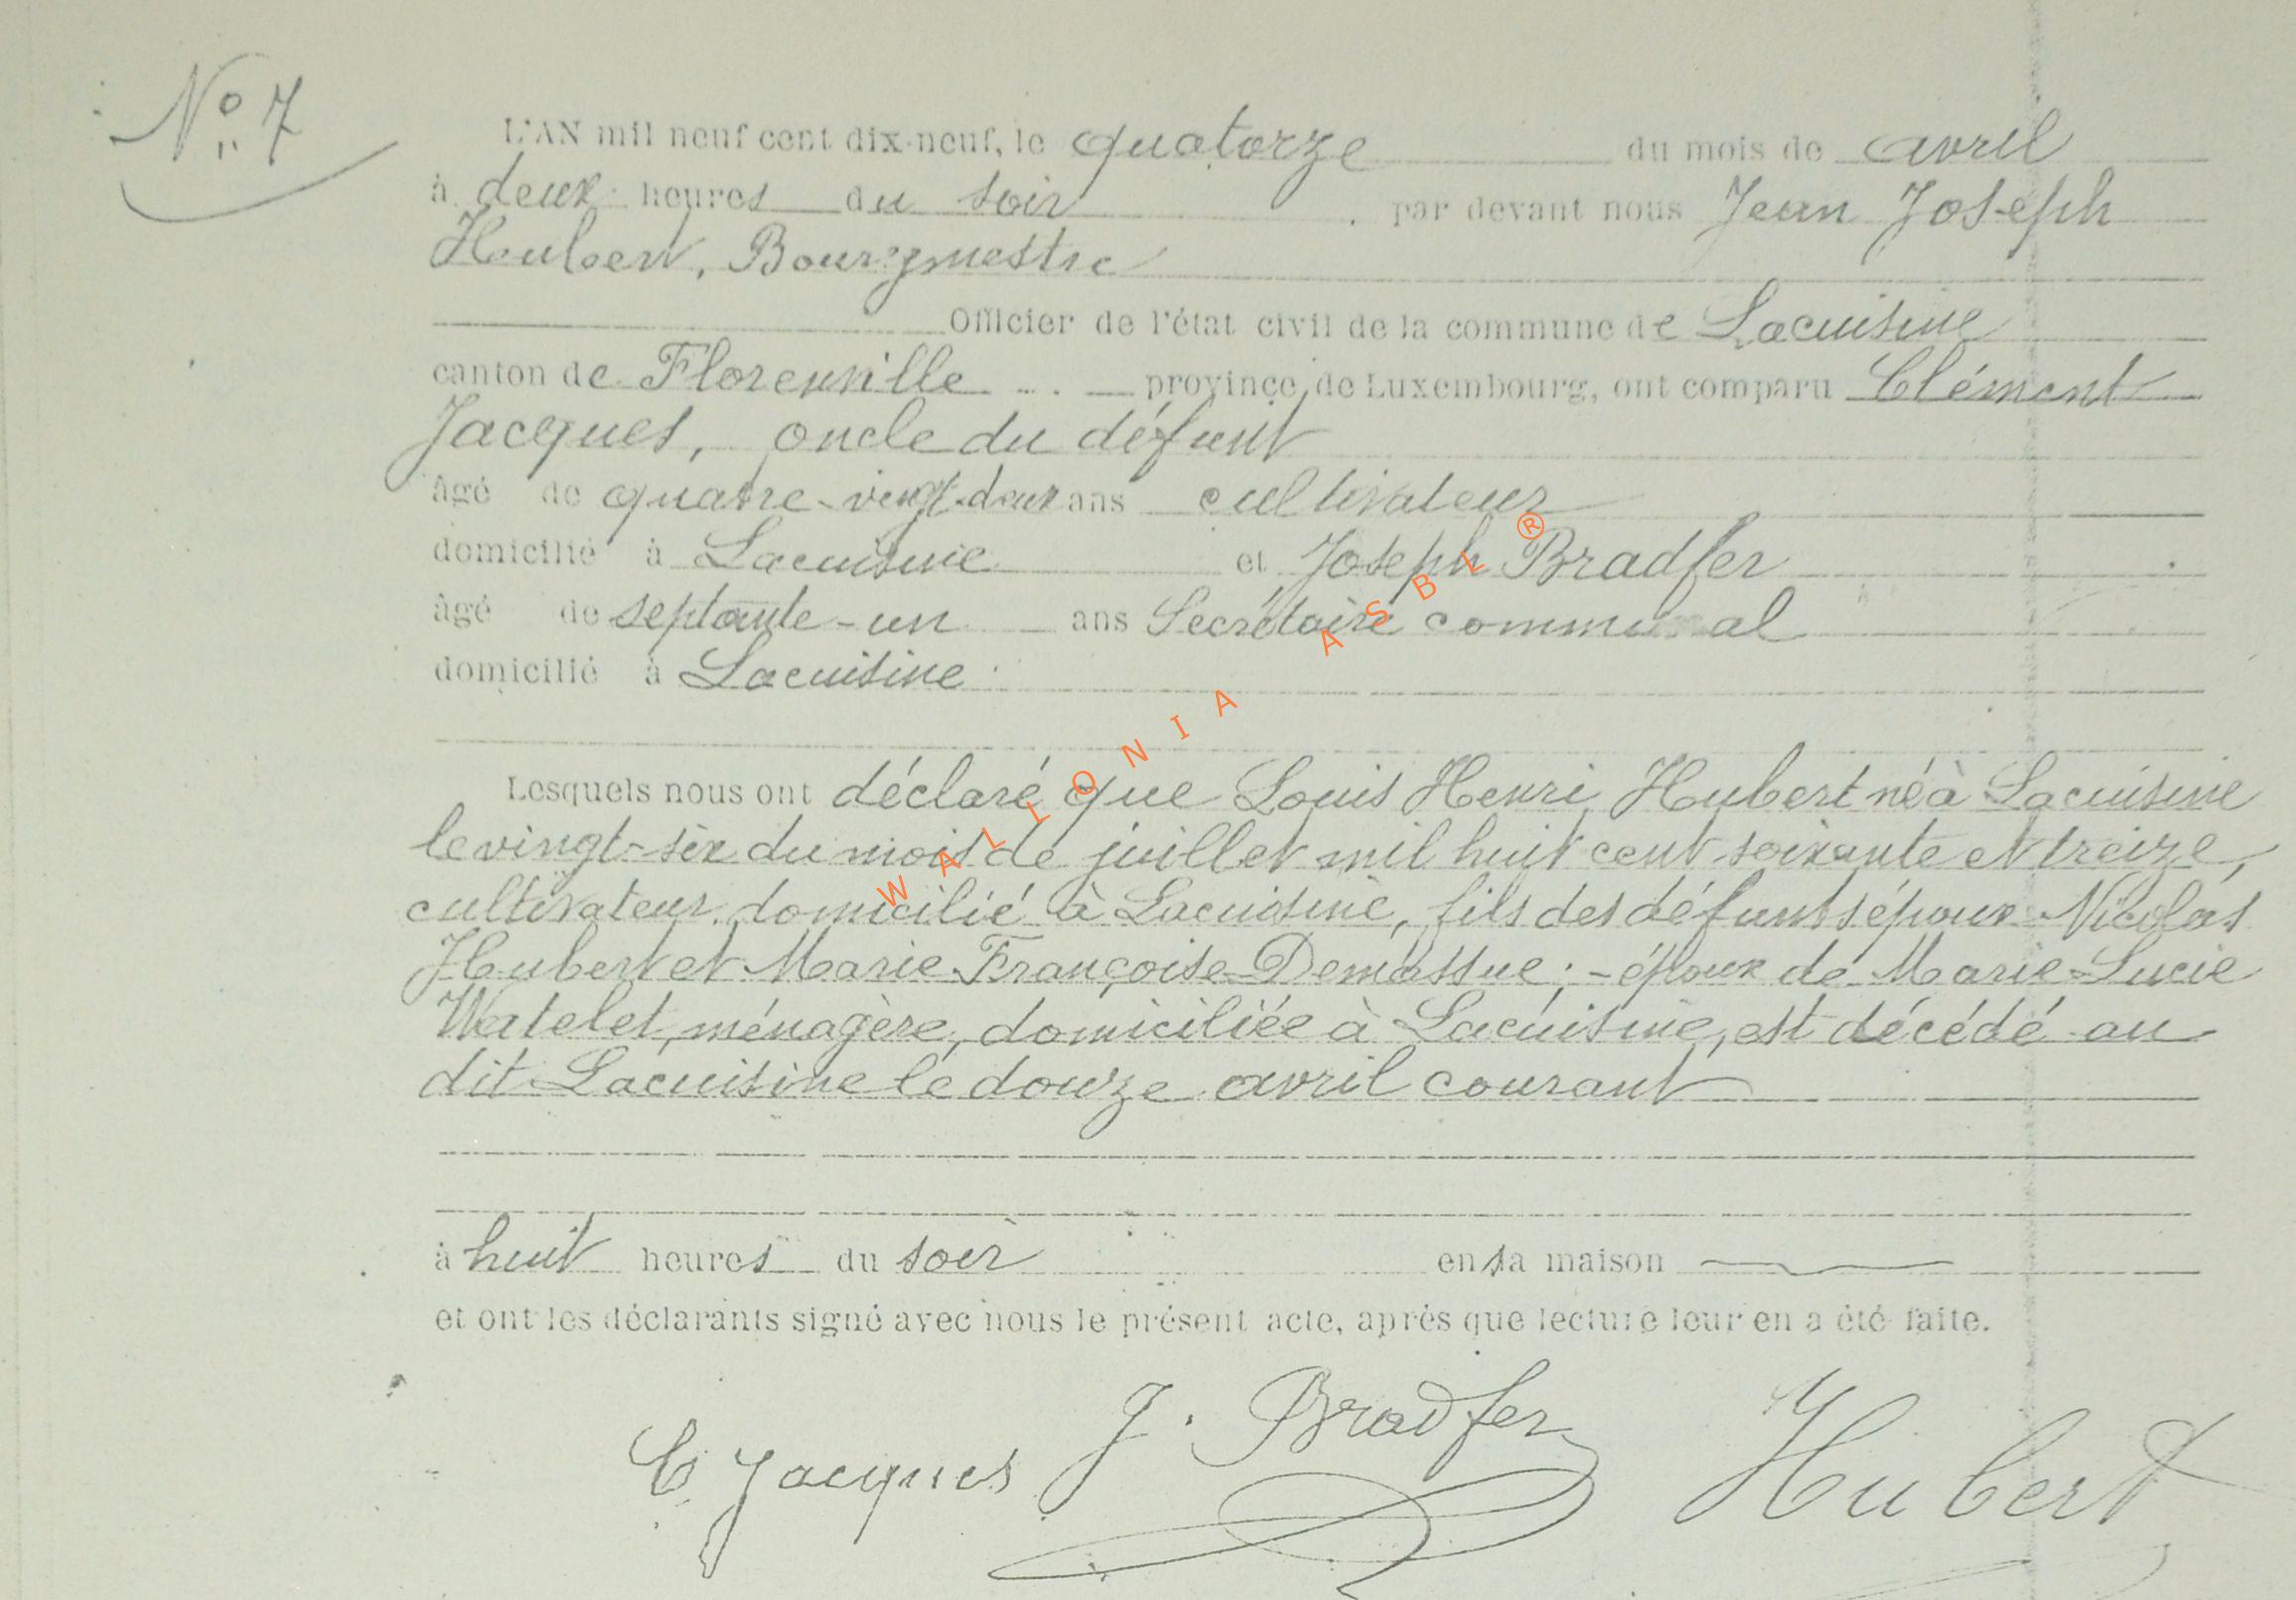 N° 7
L'AN mil neuf cent dix-neuf, le quatorze du mois de avril
à deux heures du soir par devant nous Jean Joseph
Hubert, Bourgmestre
Officier de l'état civil de la commune de Lacuisine
canton de Florenville province de Luxembourg, ont comparu Clément
Jacques, oncle du défunt
âgé de quatre-vingt-deux ans cultivateur
domicilié à Lacuisine et Joseph Bradfer
âgé de septante-un ans Secrétaire communal
domicilié à Lacuisine
Lesquels nous ont déclaré que Louis Henri Hubert né à Lacuisine
le vingt-six du mois de juillet mil huit cent soixante et treize,
cultivateur domicilié à Lacuisine, fils des défunts époux Nicolas
Hubert et Marie Françoise Demassue ; - époux de Marie Lucie
Watelet, ménagère, domiciliée à Lacuisine, est décédé au
dit Lacuisine le douze avril courant
à huit heures du soir en sa maison
et ont les déclarants signé avec nous le présent acte, après que lecture leur en a été faite.
C. Jacques J. Bradfer Hubert
WALLONIA ASBL ®